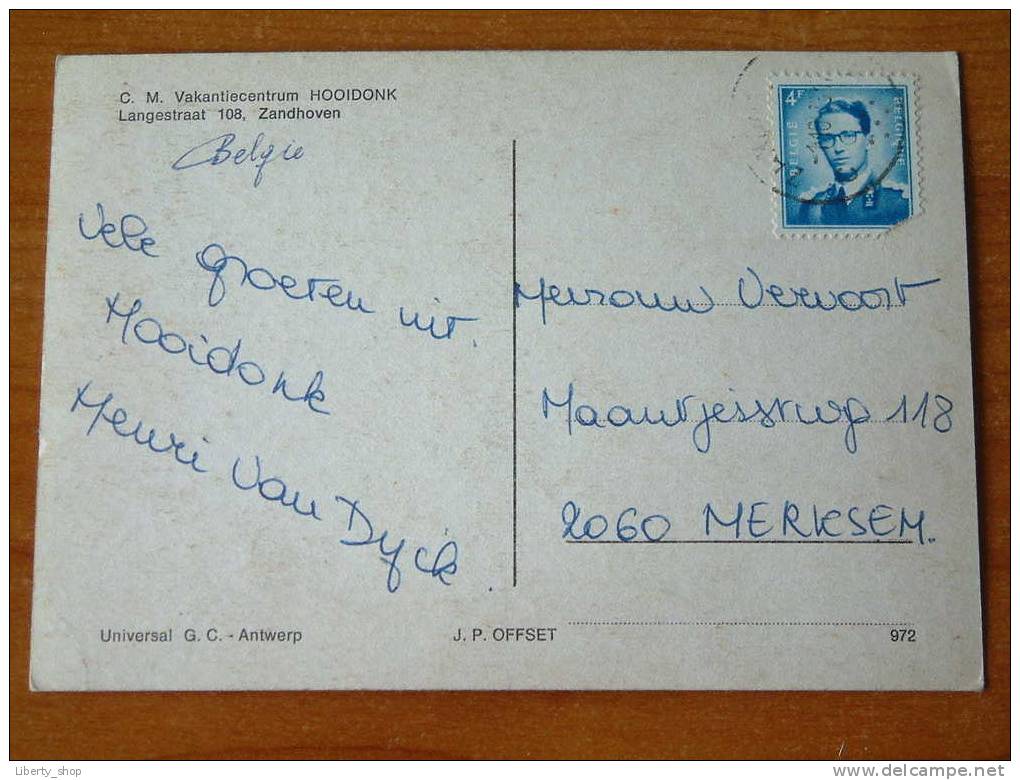 C. M. Vakantiecentrum HOOIDONK
Langestraat 108, Zandhoven
Belgie
Vele groeten uit
Hooidonk
Henri Van Dyck.
4F
BELGIE
BELGIQUE
Mevrouw Vervoort
118
2060 MERKSEM.
Universal G. C. - Antwerp
J. P. OFFSET
972
Liberty_shop
delcampe.net